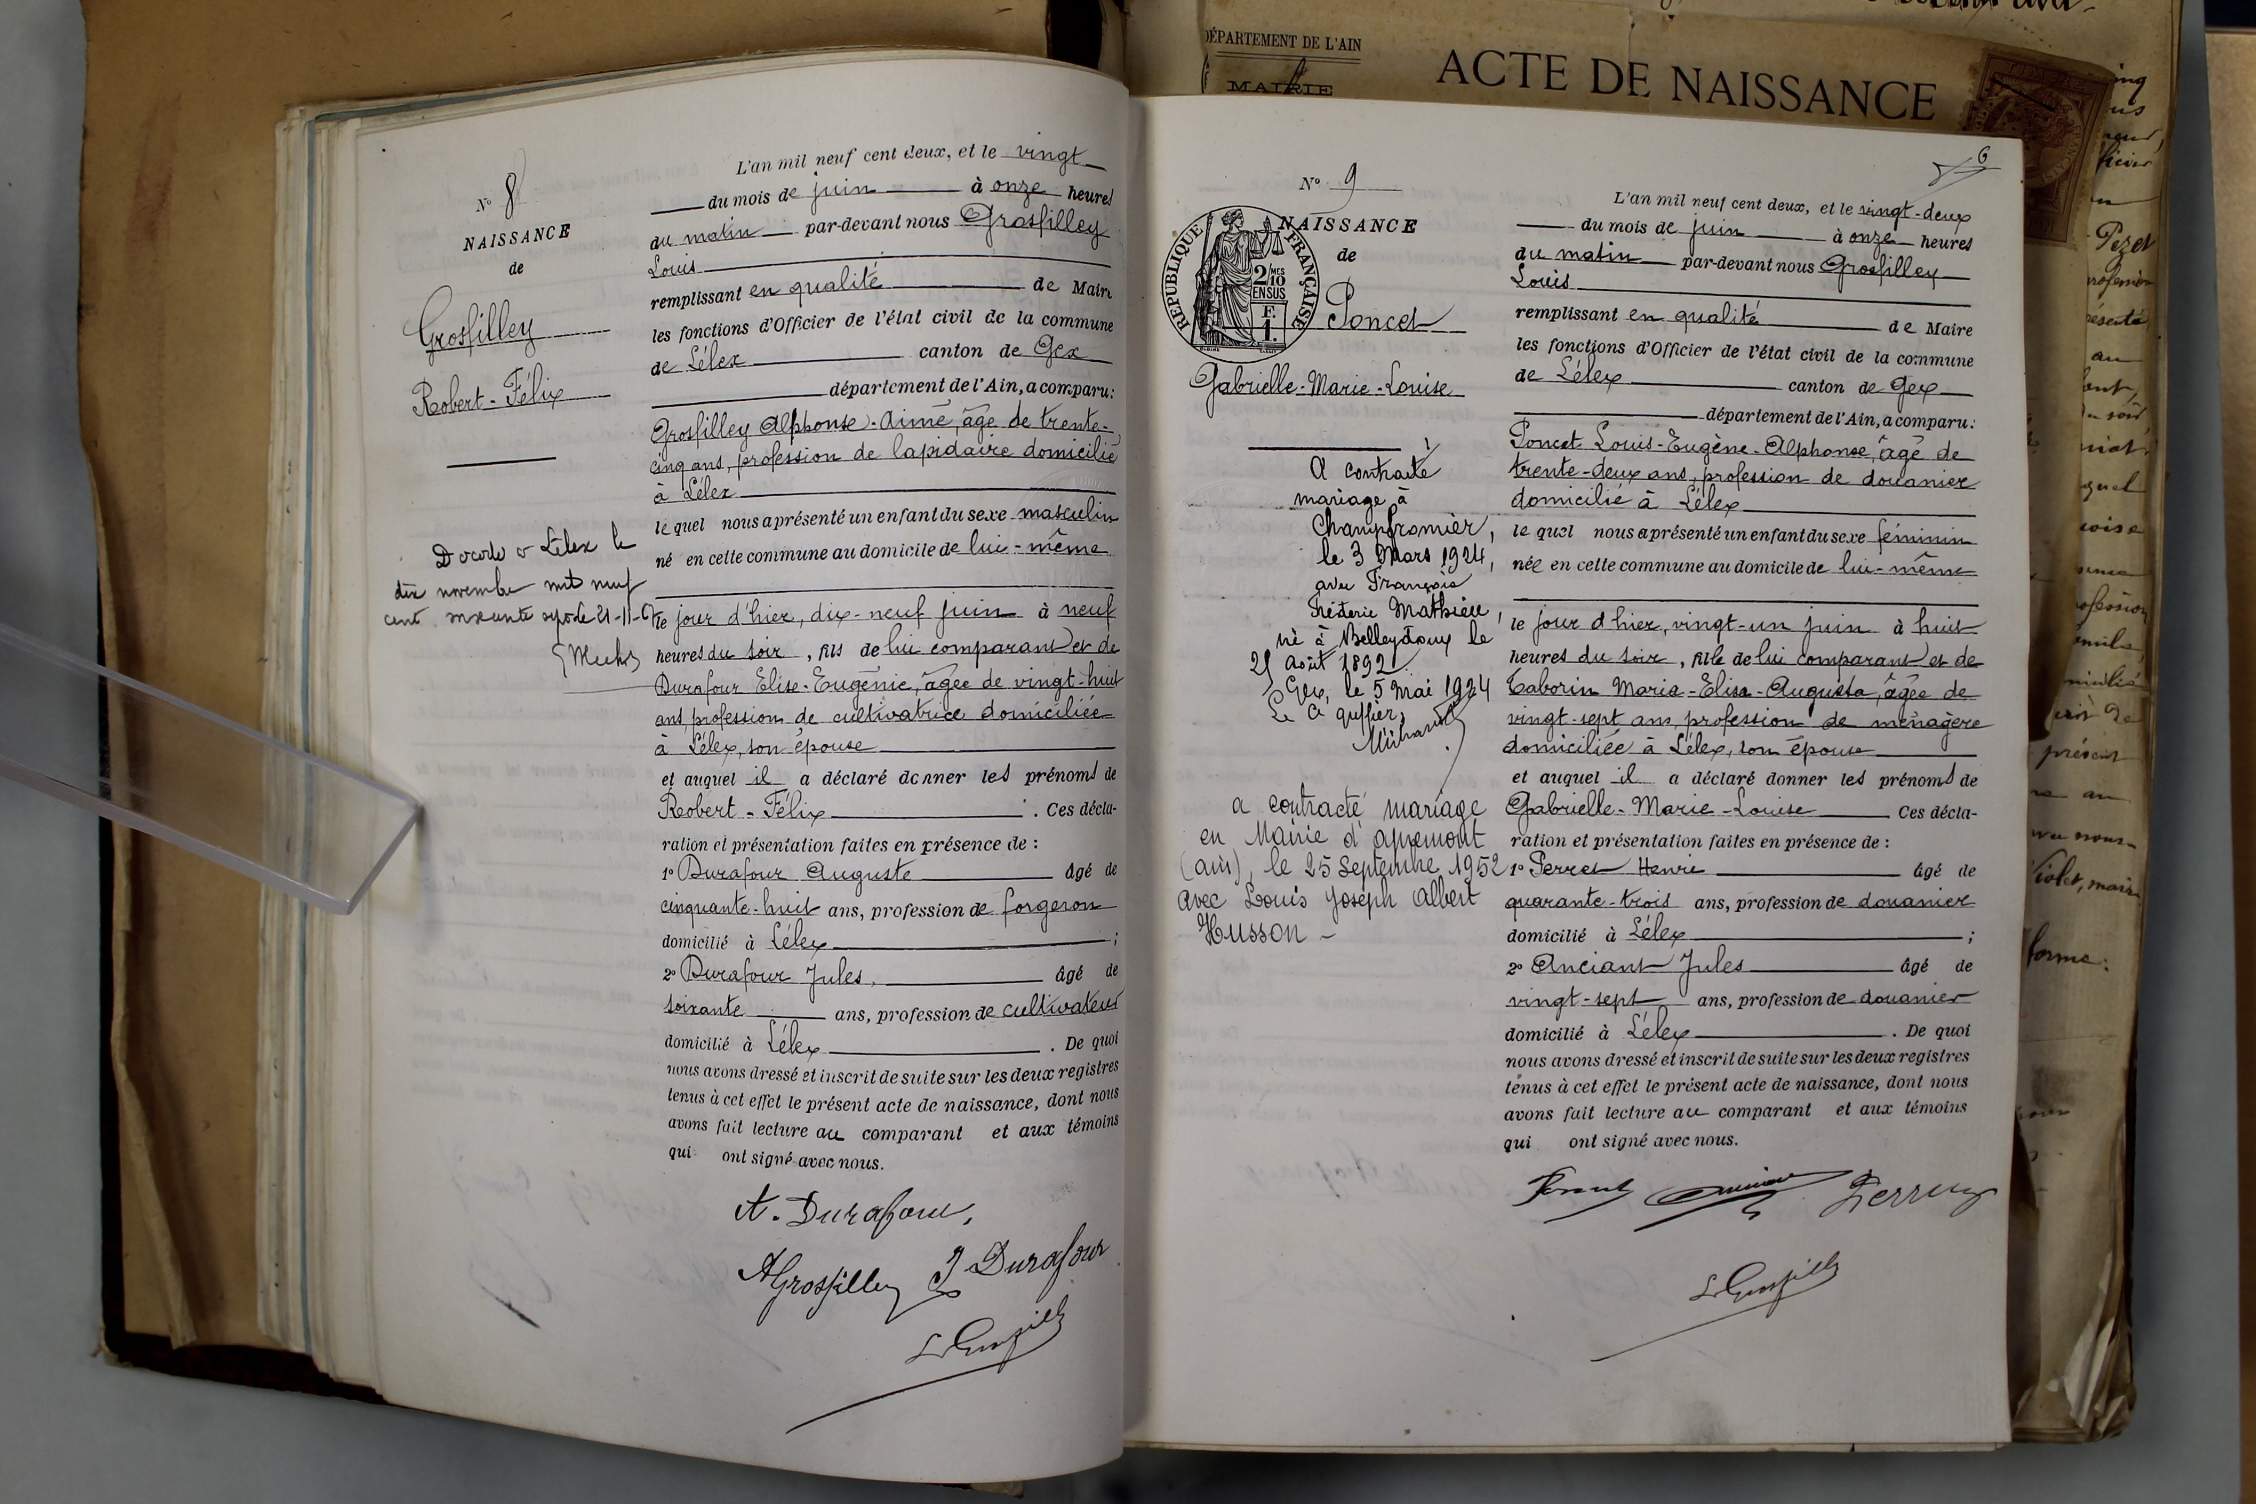 N° 8
NAISSANCE
de
Grosfilley
Robert-Félix
Décédé à Lélex le
dix novembre mil neuf
cent soixante sept le 21-11-67
L'an mil neuf cent deux, et le vingt
du mois de juin à onze heures
du matin par-devant nous Grosfilley
Louis
remplissant en qualité de Maire
les fonctions d'Officier de l'état civil de la commune
de Lélex canton de Gex
département de l'Ain, a comparu:
Grosfilley Alphonse-Aimé, âgé de trente-
cinq ans, profession de lapidaire domicilié
à Lélex
lequel nous a présenté un enfant du sexe masculin
né en cette commune au domicile de lui-même
le jour d'hier, dix-neuf juin à neuf
heures du soir, fils de lui comparant et de
Durafour Elise-Eugénie, âgée de vingt-huit
ans, profession de cultivatrice domiciliée
à Lélex, son épouse
et auquel il a déclaré donner les prénoms de
Robert-Félix. Ces décla-
ration et présentation faites en présence de :
1° Durafour Auguste âgé de
cinquante-huit ans, profession de forgeron
domicilié à Lélex ;
2° Durafour Jules, âgé de
soixante ans, profession de cultivateur
domicilié à Lélex. De quoi
nous avons dressé et inscrit de suite sur les deux registres
tenus à cet effet le présent acte de naissance, dont nous
avons fait lecture au comparant et aux témoins
qui ont signé avec nous.
A. Durafour,
AGrosfilley J Durafour
L Grosfilley
DÉPARTEMENT DE L'AIN
MAIRIE
ACTE DE NAISSANCE
6
N° 9
NAISSANCE
de
RÉPUBLIQUE FRANÇAISE
2/10 MES
EN SUS
F.
1.
Poncet
Gabrielle-Marie-Louise
A contracté
mariage à
Champfromier,
le 3 Mars 1924,
avec François
Fréderic Mathieu,
né à Belleydoux le
25 août 1892
Gex, le 5 Mai 1924
Le Cis greffier,
a contracté mariage
en Mairie d'apremont
(ain), le 25 Septembre 1952
avec Louis Joseph Albert
Husson -
L'an mil neuf cent deux, et le vingt-deux
du mois de juin à onze heures
du matin par-devant nous Grosfilley
Louis
remplissant en qualité de Maire
les fonctions d'Officier de l'état civil de la commune
de Lélex canton de Gex
département de l'Ain, a comparu:
Poncet Louis-Eugène-Alphonse, âgé de
trente-deux ans, profession de douanier
domicilié à Lélex
lequel nous a présenté un enfant du sexe féminin
née en cette commune au domicile de lui-même
le jour d'hier, vingt-un juin à huit
heures du soir, fille de lui comparant et de
Taborin Marie-Elisa-Augusta, âgée de
vingt-sept ans, profession de ménagère
domiciliée à Lélex, son épouse
et auquel il a déclaré donner les prénoms de
Gabrielle-Marie-Louise Ces décla-
ration et présentation faites en présence de :
1° Perret Henri âgé de
quarante-trois ans, profession de douanier
domicilié à Lélex ;
2° Anciant Jules âgé de
vingt-sept ans, profession de douanier
domicilié à Lélex. De quoi
nous avons dressé et inscrit de suite sur les deux registres
tenus à cet effet le présent acte de naissance, dont nous
avons fait lecture au comparant et aux témoins
qui ont signé avec nous.
Poncet Anciant Perret
L Grosfilley
Pezet
présent
Violet, maire
forme: